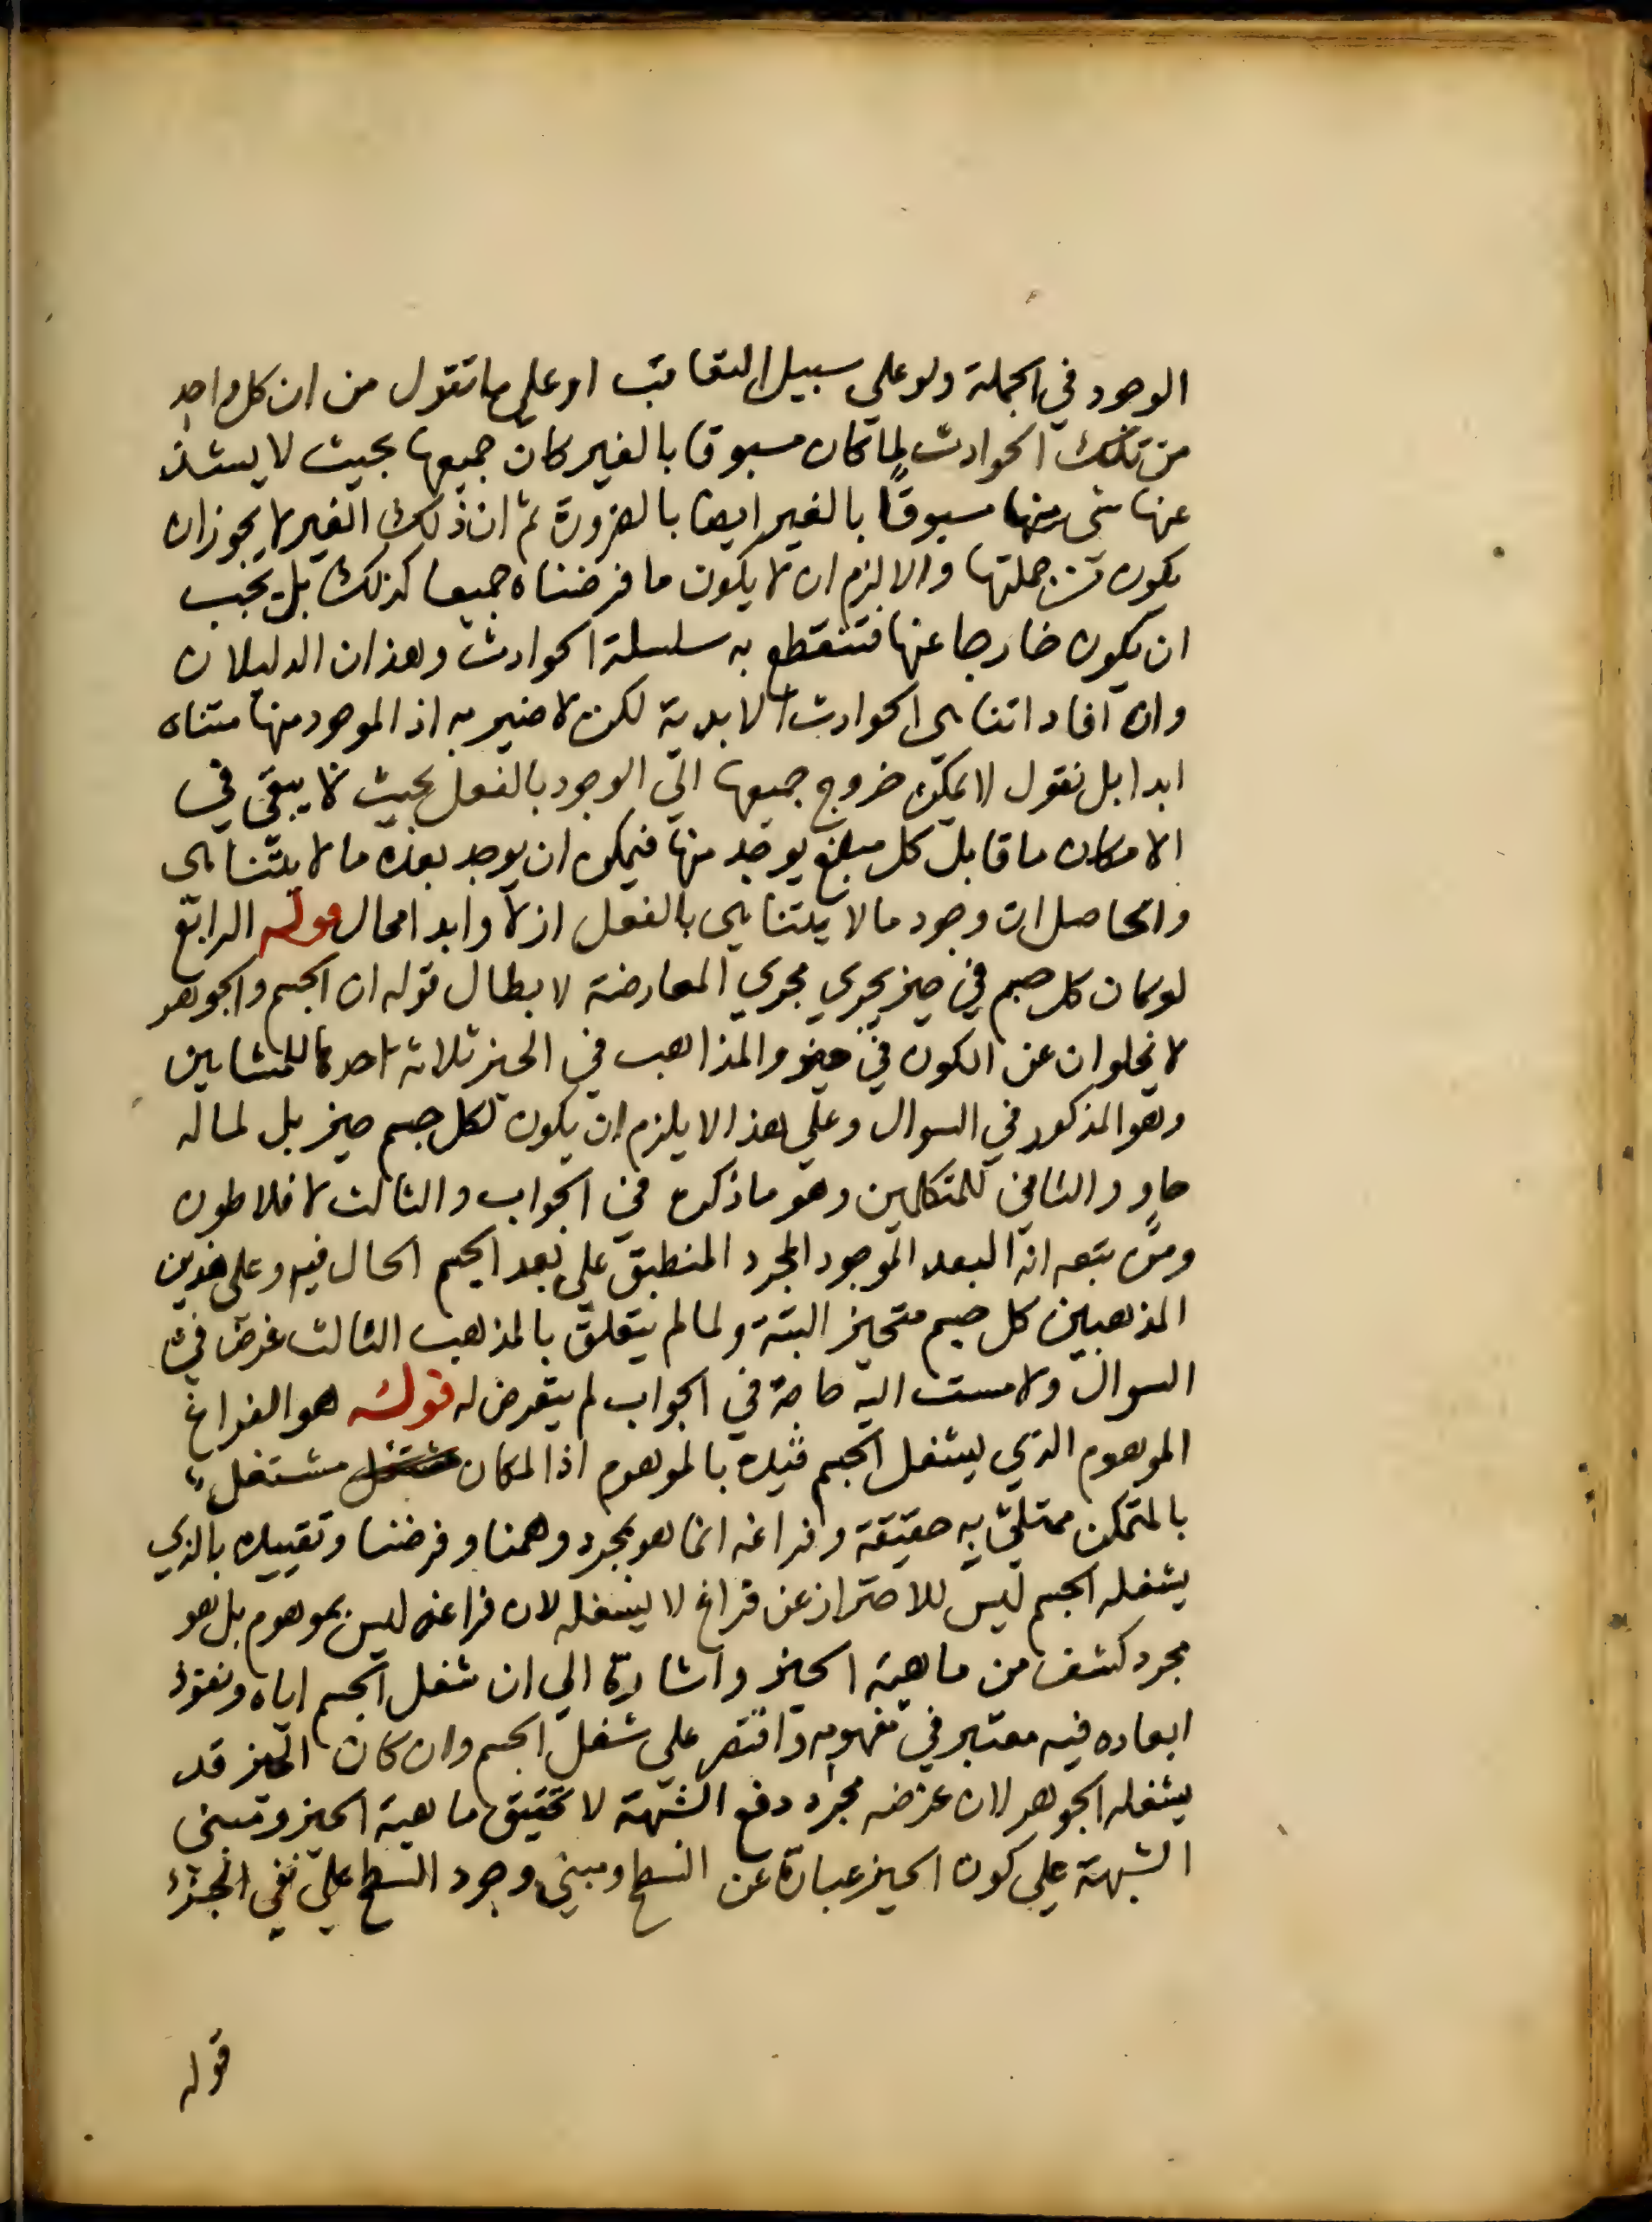 الوجود في الجملة ولو على سبيل التعاقب او على ما تقول من ان كل واحد
من تلك الحوادث لما كان مسبوقا بالغير كان جميعها بحيث لا يشذ
عنها شئ منها مسبوقًا بالغير ايضا بالضرورة ثم ان ذلك الغير لا يجوز ان
يكون من جملتها والا لزم ان لا يكون ما فرضناه جميعا كذلك بل يجب
ان يكون خارجا عنها فتنقطع به سلسلة الحوادث وهذان الدليلان
وان افادا تناهى الحوادث الابدية لكن لا ضير به اذ الموجود منها متناه
ابدا بل نقول لا يمكن خروج جميعها الي الوجود بالفعل بحيث لا يبقى في
الامكان ما قابل كل مبلغ يوجد منها فيمكن ان يوجد بعده ما لا يتناهى
والحاصل ان وجود ما لا يتناهى بالفعل ازلا وابدا محال قوله الرابع
لو كان كل جسم في حيز يجري مجري المعارضة لابطال قوله ان الجسم والجوهر
لا يخلوان عن الكون في حيز والمذاهب في الحيز ثلاثة احدها للمشايين
وهو المذكور في السوال وعلي هذا لا يلزم ان يكون لكل جسم حيز بل لما له
حاوٍ والثاني للمتكلمين وهو ما ذكره في الجواب والثالث لافلاطون
ومن تبعه انه البعد الموجود المجرد المنطبق علي بعد الجسم الحال فيه وعلى هذين
المذهبين كل جسم متحيز البتة ولما لم يتعلق بالمذهب الثالث غرض في
السوال ولا مست اليه حاجة في الجواب لم يتعرض له قوله هو الفراغ
الموهوم الذي يشغل الجسم قيده بالموهوم اذ المكان مشتغل
بالمتمكن ممتلئ به حقيقة وفراغه انما هو بمجرد وهمنا وفرضنا وتقييده بالذي
يشغله الجسم ليس للاحتراز عن فراغ لا يشغله لان فراغه ليس بموهوم بل هو
مجرد كشف من ماهية الحيز واشارة الي ان شغل الجسم اياه ونفوذ
ابعاده فيه معتبر في مفهومه واقتصر علي شغل الجسم وان كان الحيز قد
يشغله الجوهر لان غرضه مجرد دفع الشبهة لا تحقيق ماهية الحيز ومبنى
الشبهة علي كون الحيز عبارة عن السطح ومبني وجود السطح علي نفي الجزء
قوله